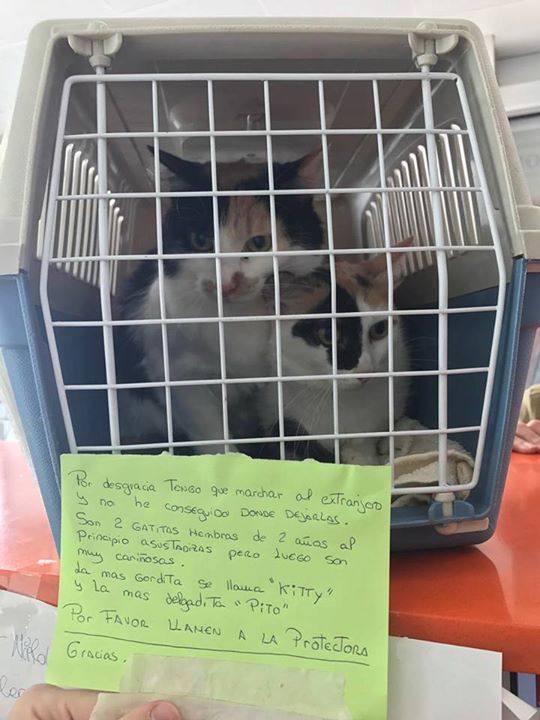 Por desgracia TENGO que marchar al extranjero
y no he conseguido DONDE DEJARLAS.
Son 2 GATITAS Hembras de 2 años al
Principio ASUSTADIZAS pero LUEGO son
muy cariñosas.
La mas Gordita se llama "KITTY"
y La mas delgadita "PITO"
Por FAVOR LLAMEN A LA Protectora
Gracias.